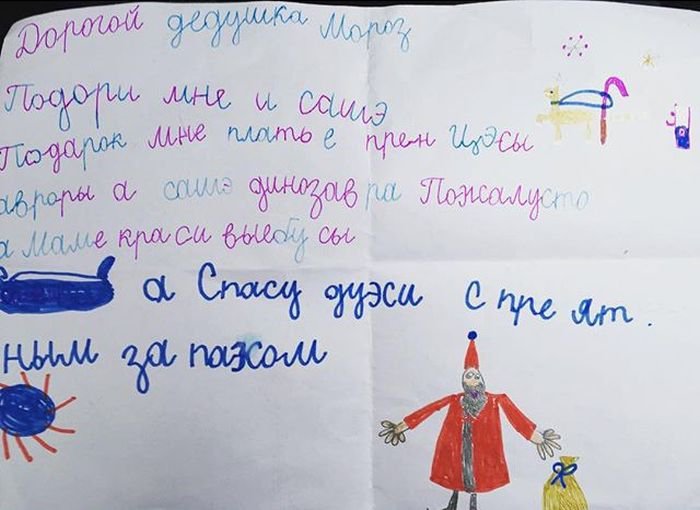 Дорогой дедушка Мороз
Подори мне и сашэ
Подарок мне платье пренцэсы
авроры а сашэ динозавра Пожалусто
а Маме красивыебусы
а Спасу дуэси с преят.
ным запахом